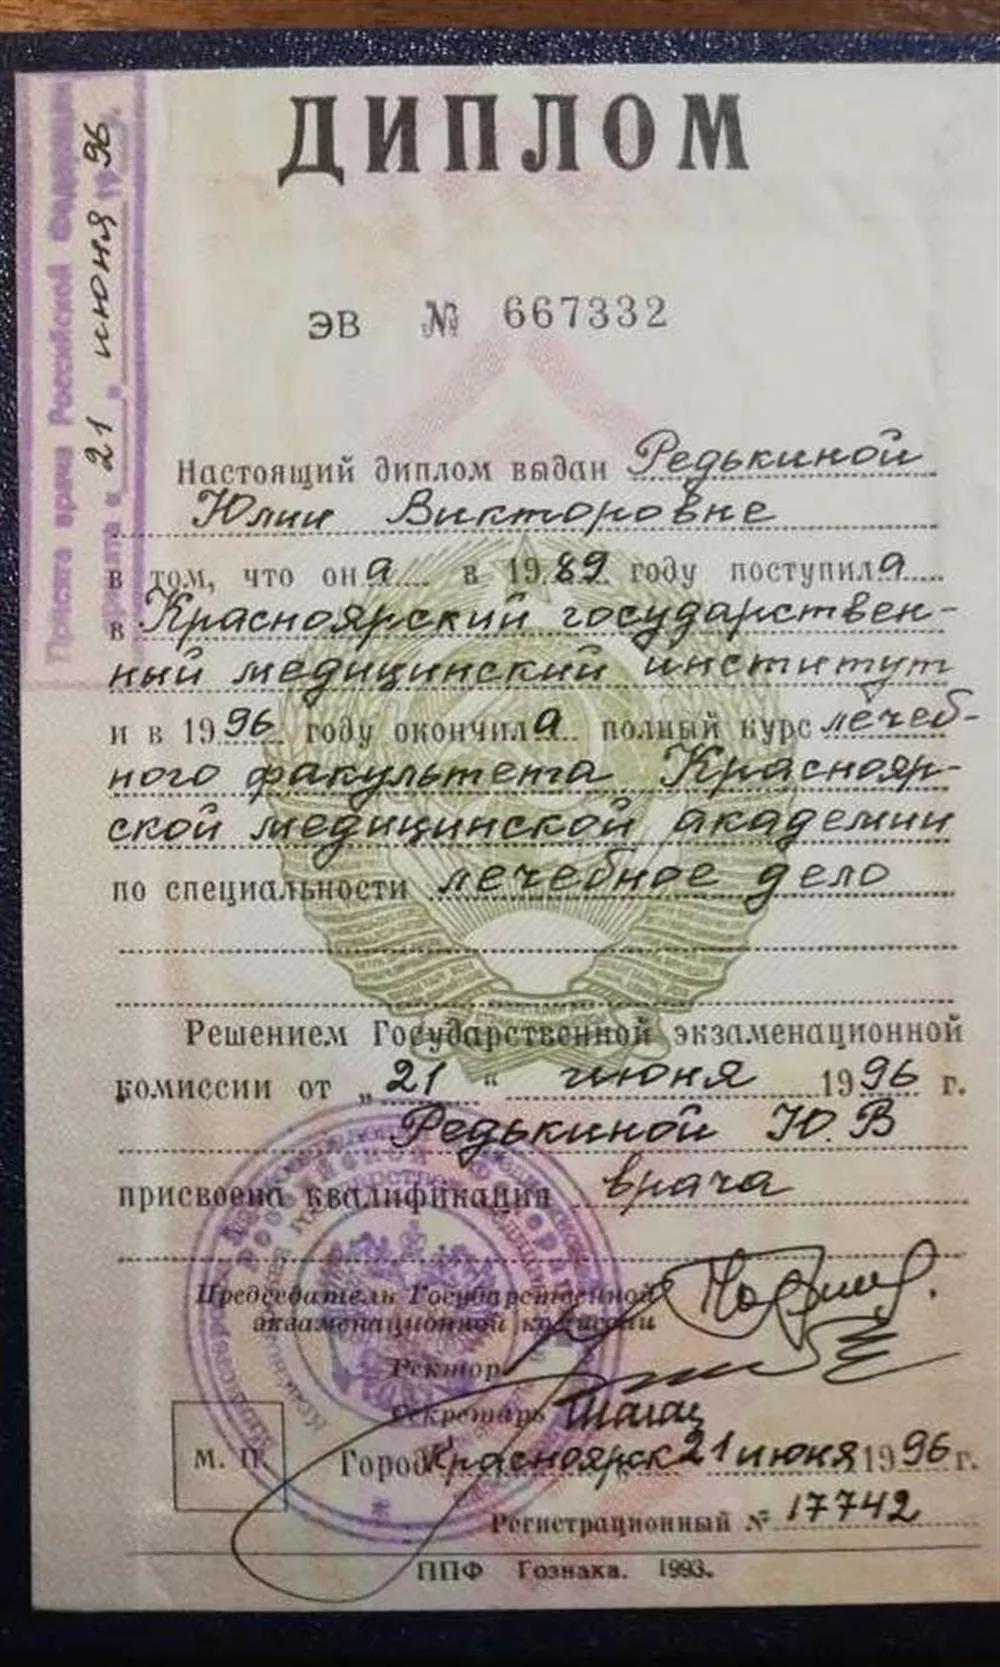 Присяга врача Российской Федерации
принята „ 21 " июня 1996 г.
ДИПЛОМ
ЭВ № 667332
Настоящий диплом выдан Редькиной
Юлии Викторовне
в том, что она в 1989 году поступила
в Красноярский государствен-
ный медицинский институт
и в 1996 году окончила полный курс лечеб-
ного факультета Краснояр-
ской медицинской академии
по специальности лечебное дело
Решением Государственной экзаменационной
комиссии от „ 21 “ июня 1996 г.
Редькиной Ю. В
присвоена квалификация врача
Председатель Государственной
экзаменационной комиссии
Ректор
Секретарь
М. П.
Город Красноярск 21 июня 1996 г.
Регистрационный № 17742
ППФ Гознака. 1993.